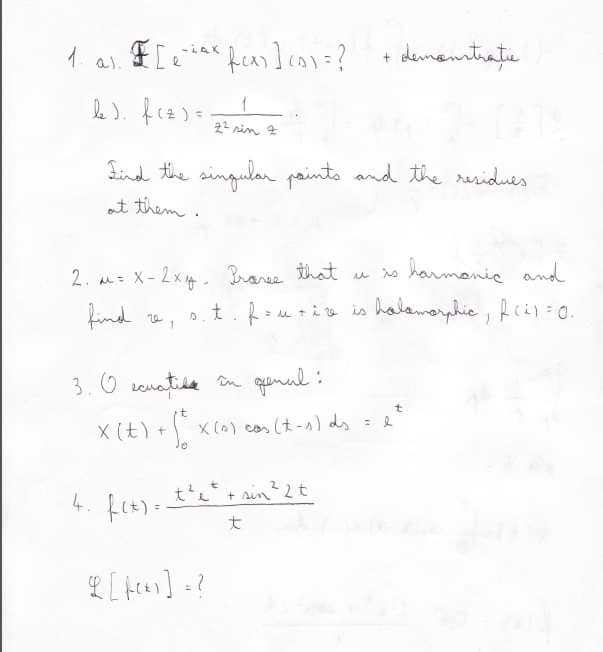 1. a). F[e^{-iax} f(x)](s) = ? + demonstraţie
b). f(z) = \frac{1}{z^2 \sin z}.
Find the singular points and the residues
at them.
2. u = x - 2xy. Prove that u is harmonic and
find v, s.t. f = u + iv is holomorphic, f(i) = 0.
3. O ecuaţie în genul:
x(t) + \int_0^t x(s) cos(t-s) ds = e^t
4. f(t) = \frac{t^2 e^t + sin^2 2t}{t}
L[f(t)] = ?